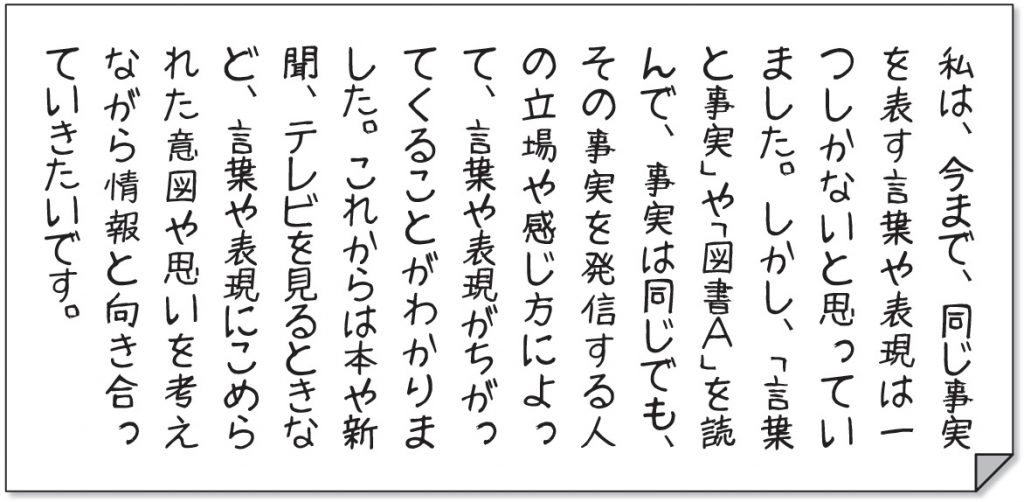 私は、今まで、同じ事実
を表す言葉や表現は一
つしかないと思ってい
ました。しかし、「言葉
と事実」や「図書A」を読
んで、事実は同じでも、
その事実を発信する人
の立場や感じ方によっ
て、言葉や表現がちがっ
てくることがわかりま
した。これからは本や新
聞、テレビを見るときな
ど、言葉や表現にこめら
れた意図や思いを考え
ながら情報と向き合っ
ていきたいです。